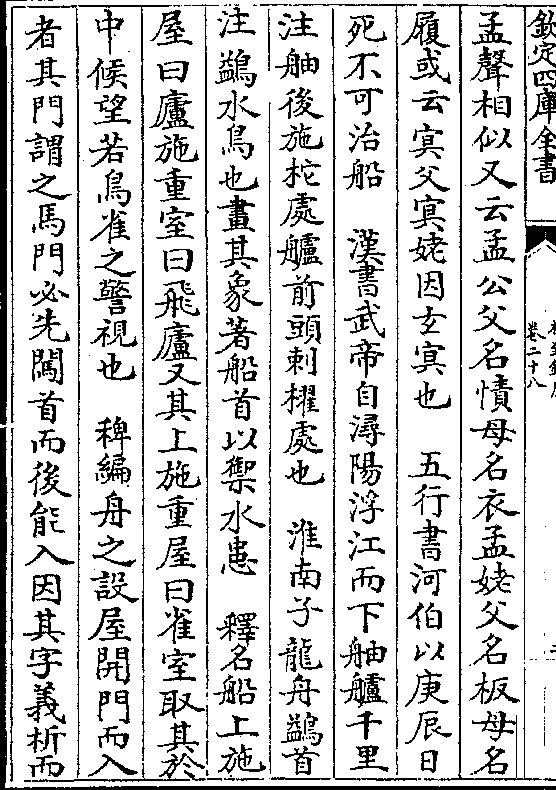 欽定四庫全書
卷二十八
孟聲相似又云孟公父名憒母名衣孟姥父名板母名
履或云㝠父㝠姥因玄㝠也　五行書河伯以庚辰日
死不可治船　漢書武帝自潯陽浮江而下舳艫千里
注舳後施柁處艫前頭刺櫂處也　淮南子龍舟鷁首
注鷁水鳥也畫其象著船首以禦水患　釋名船上施
屋曰廬施重室曰飛廬又其上施重屋曰雀室取其於
中候望若鳥雀之警視也　稗編舟之設屋開門而入
者其門謂之馬門必先闖首而後能入因其字義析而